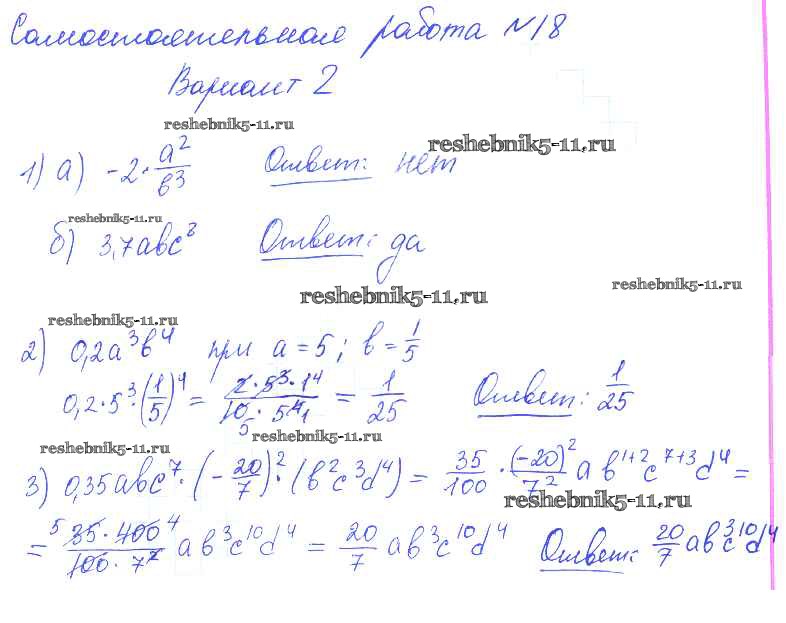 Самостоятельная работа №18
Вариант 2
reshebnik5-11.ru
1) а) -2·a²/b³ Ответ: нет
reshebnik5-11.ru
reshebnik5-11.ru
б) 3,7abc³ Ответ: да
reshebnik5-11.ru
reshebnik5-11.ru
reshebnik5-11.ru
2) 0,2a³b⁴ при a=5; b=1/5
0,2·5³·(1/5)⁴ = 2·5³·1⁴/10·5⁴ 5 1 = 1/25 Ответ: 1/25
reshebnik5-11.ru
reshebnik5-11.ru
3) 0,35abc⁷·(-20/7)²·(b²c³d⁴) = 35/100·(-20)²/7² a b¹⁺²c⁷⁺³d⁴ =
reshebnik5-11.ru
= 5 35·400 4/100·7² ab³c¹⁰d⁴ = 20/7 ab³c¹⁰d⁴ Ответ: 20/7 ab³c¹⁰d⁴